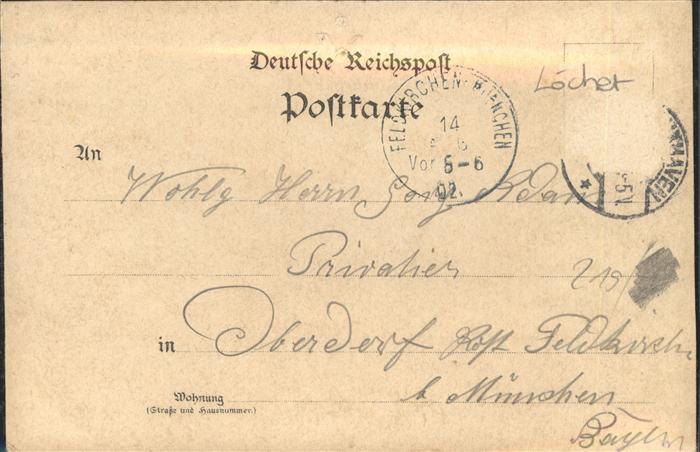 Deutsche Reichspost
Löcher
Postkarte
FELDKIRCHEN-MUENCHEN
14
Vor 5-6
02.
HAVEN
5-
An
Wohlg Herrn Georg Adam
Privatier
219/
in Oberdorf Post Feldkirchen
b München
Wohnung
(Straße und Hausnummer.)
Bayern